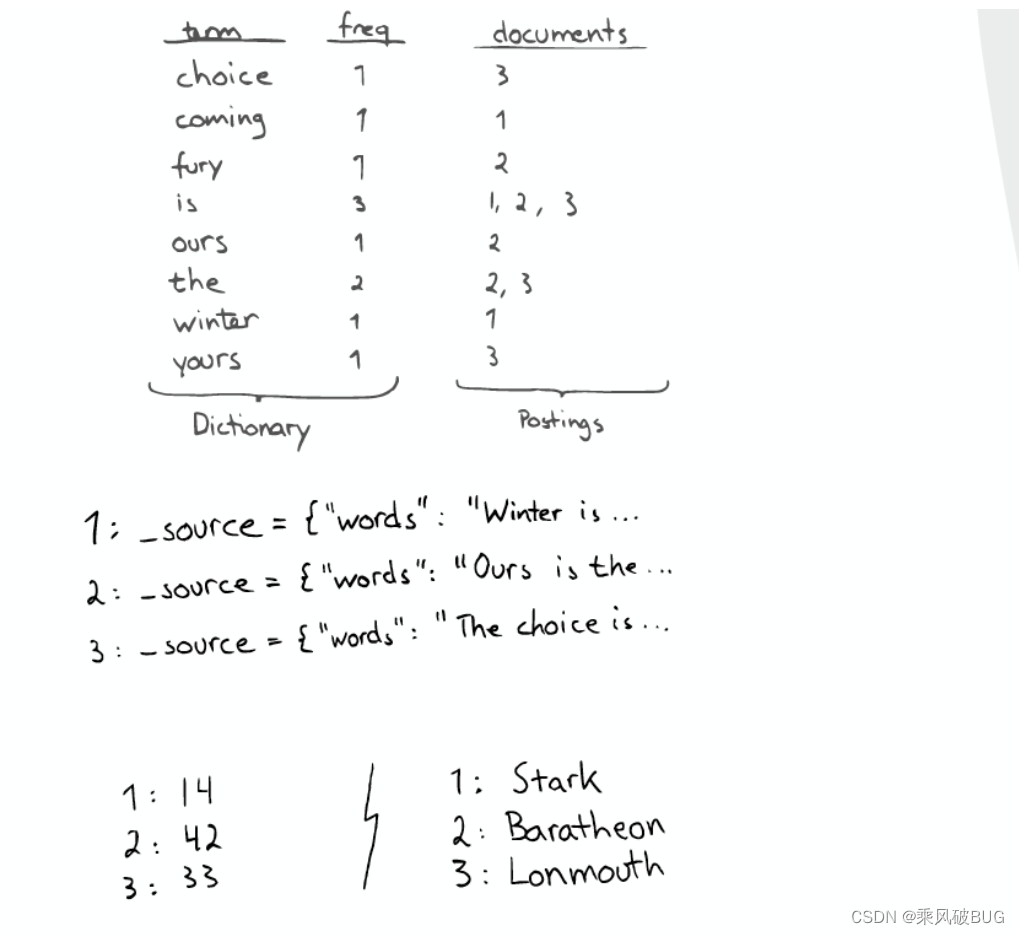 term freq documents
choice 1 3
coming 1 1
fury 1 2
is 3 1, 2, 3
ours 1 2
the 2 2, 3
winter 1 1
yours 1 3
Dictionary Postings
1: _source = {"words": "Winter is ...
2: _source = {"words": "Ours is the...
3: _source = {"words": "The choice is...
1: 14 1: Stark
2: 42 2: Baratheon
3: 33 3: Lonmouth
CSDN @乘风破BUG